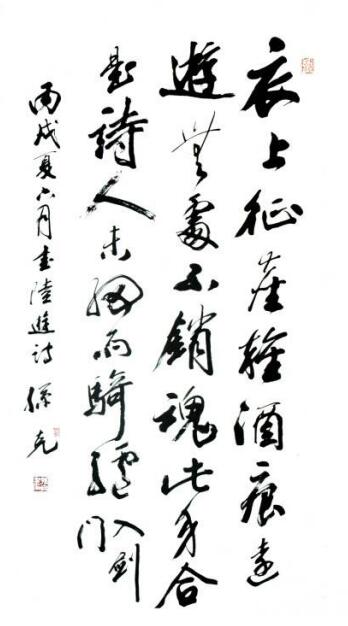 衣上征塵雜酒痕遠
遊無處不銷魂此身合
是詩人未細雨騎驢入劍門
丙戌夏六月書陸遊詩 孫克